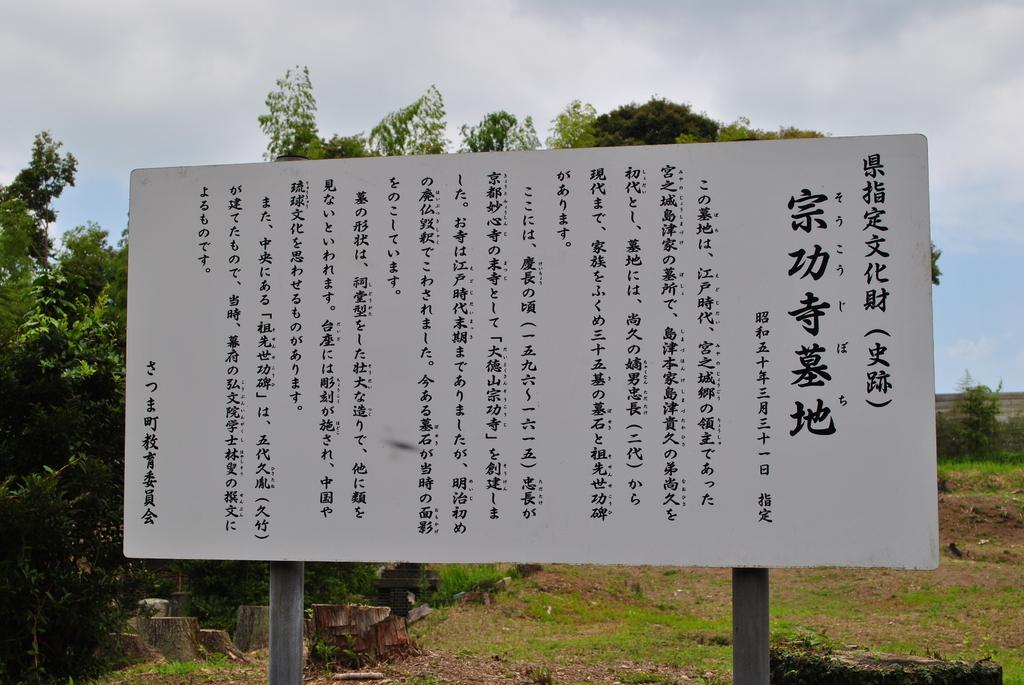 県指定文化財（史跡）
宗功寺墓地
そうこうじぼち
昭和五十年三月三十一日　指定
この墓地は、江戸時代、宮之城郷の領主であった
宮之城島津家の墓所で、島津本家島津貴久の弟尚久を
初代とし、墓地には、尚久の嫡男忠長（二代）から
現代まで、家族をふくめ三十五基の墓石と祖先世功碑
があります。
ここには、慶長の頃（一五九六〜一六一五）忠長が
京都妙心寺の末寺として「大徳山宗功寺」を創建しま
した。お寺は江戸時代末期までありましたが、明治初め
の廃仏毀釈でこわされました。今ある墓石が当時の面影
をのこしています。
墓の形状は、祠堂型をした壮大な造りで、他に類を
見ないといわれます。台座には彫刻が施され、中国や
琉球文化を思わせるものがあります。
また、中央にある「祖先世功碑」は、五代久胤（久竹）
が建てたもので、当時、幕府の弘文院学士林叟の撰文に
よるものです。
さつま町教育委員会